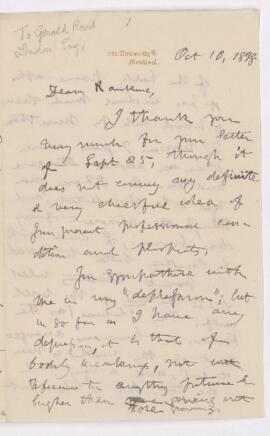 To Gerald Road
London Eng.
Montreal.
Oct 10, 1898
Dear Rankine,
I thank you
very much for your letter
of Sept 25, though it
does not convey any definite
& very cheerful idea of
your present professional con-
dition and prospects.
You sympathise with
me in my "depression"; but
in so far as I have any
depression, it is that of
bodily weakness, not
to anything
higher than